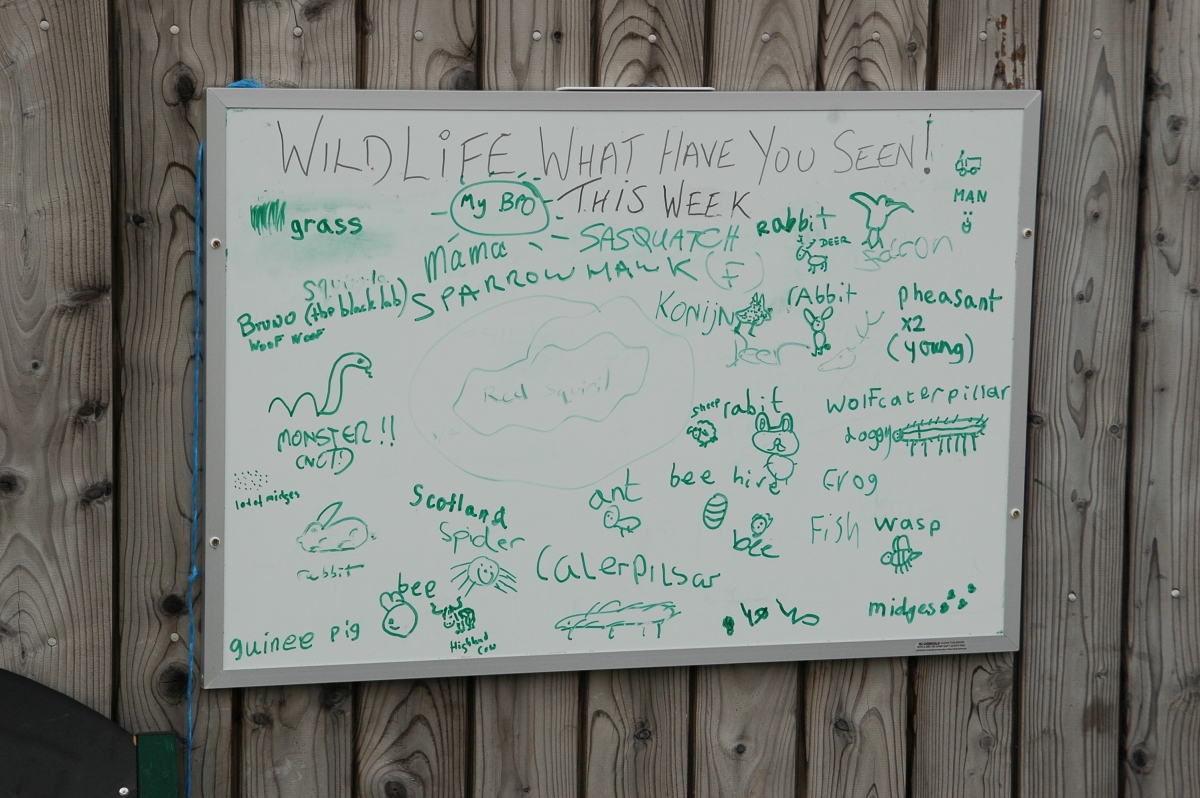 WILDLIFE WHAT HAVE YOU SEEN!
THIS WEEK
MAN
grass
My BRO
rabbit
DEER
mama
SASQUATCH
SPARROW HAWK (F)
Bruno (the black lab)
WOOF WOOF
KONIJN
rAbbit
deer
pheasant
x2
(young)
Red Squiril
MONSTER!!
sheep
rabit
wolfcaterpillar
doggy
lod of midges
Scotland
spider
ant
bee hive
bee
frog
Fish
wasp
rabbit
bee
CaterPilsar
midges
guinee pig
Highland
Cow